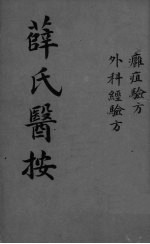 癰疽驗方
外科經驗方
薛氏醫按